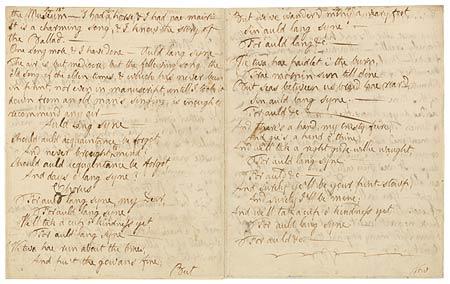 the Museum — I had a horse & I had nae mair —
It is a charming song, & I know the story of
the Ballad.
One song more, & I have done — Auld lang syne
The air is but mediocre; but the following song, the
old song of the olden times, & which has never been
in print, nor even in manuscript, untill I took it
down from an old man's singing, is enough to
recommend any air —
Auld lang syne —
Should auld acquaintance be forgot,
And never brought mind?
Should auld acquaintance be forgot,
And days o' lang syne?
Chorus
For auld lang syne, my Dear,
For auld lang syne,
We'll tak a cup o' kindness yet
For auld lang syne
We twa hae run about the braes,
And pu't the gowans fine;
But
But we've wander'd mony a weary foot
Sin auld lang syne.
For auld lang &c —
We twa hae paidlet i' the burn,
Frae mornin sun till dine:
But seas between us braid hae roar'd
Sin auld lang syne —
For auld &c —
And there's a hand, my trusty fiere,
And gie's a hand o' thine;
And we'll tak a right gude-willie waught
For auld lang syne
For auld &c —
And surely ye'll be your pint stowp,
And surely I'll be mine;
And we'll tak a cup o' kindness yet
For auld lang syne!
For auld &c —
Now